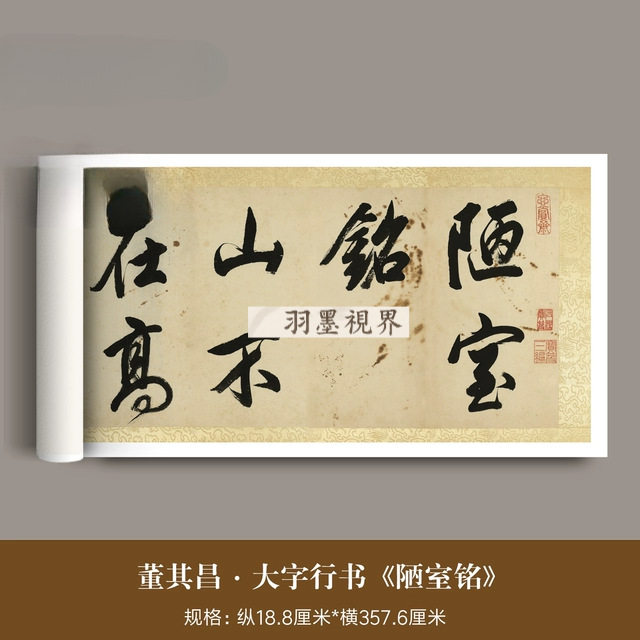 陋室
銘
山不
在高
羽墨視界
董其昌·大字行书《陋室铭》
规格：纵18.8厘米*横357.6厘米